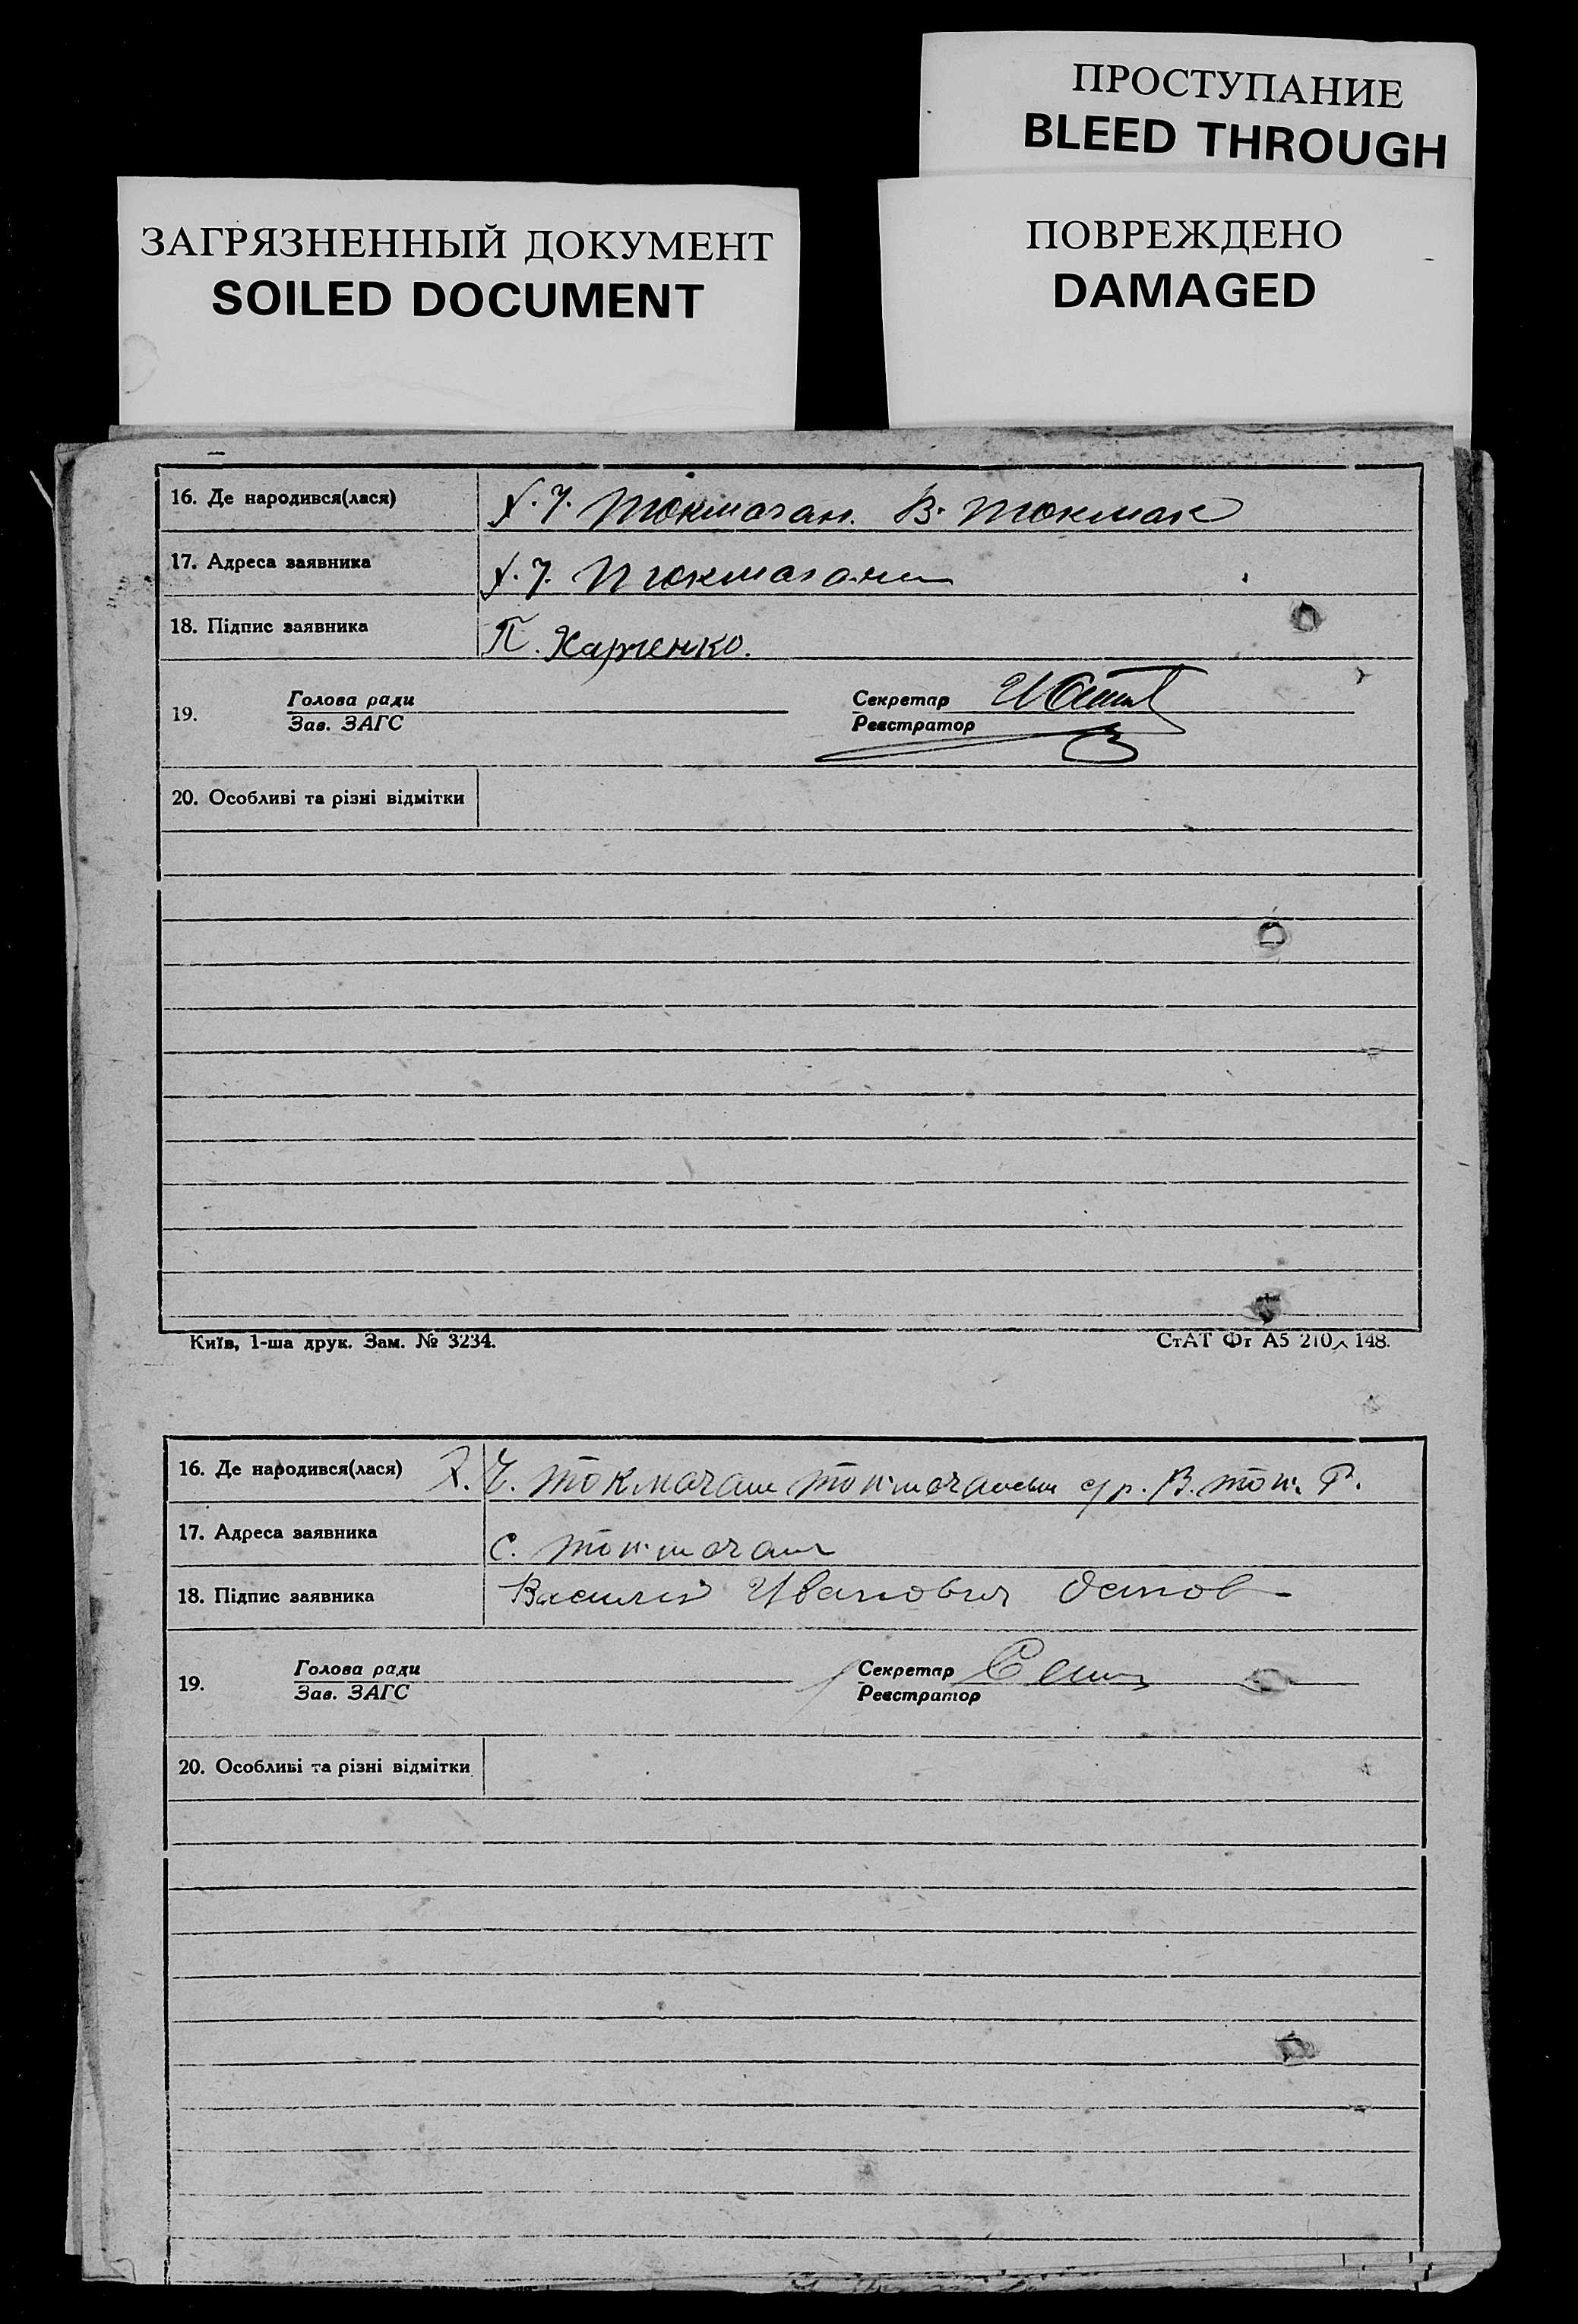 ПРОСТУПАНИЕ
BLEED THROUGH
ЗАГРЯЗНЕННЫЙ ДОКУМЕНТ
SOILED DOCUMENT
ПОВРЕЖДЕНО
DAMAGED
16. Де народився(лася) В. Токмак
17. Адреса заявника
18. Підпис заявника П. Харченко.
Голова ради Секретар
19.
Зав. ЗАГС Реєстратор
20. Особливі та різні відмітки
Київ, 1-ша друк. Зам. № 3234. СтАТ Фт А5 210 148.
16. Де народився(лася) Х. Ч. Токмачан с/р. В. Ток. Р.
17. Адреса заявника с.
18. Підпис заявника Василий Иванович
Голова ради Секретар
19.
Зав. ЗАГС Реєстратор
20. Особливі та різні відмітки